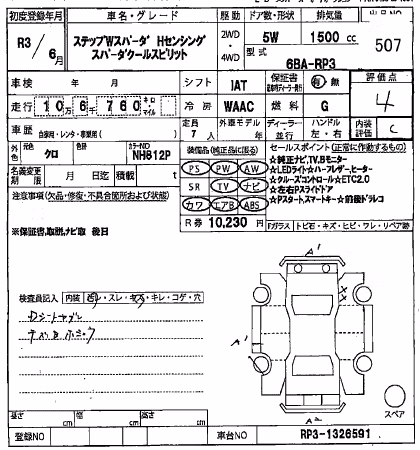 初度登録年月 車名・グレード 駆動 ドア数・形状 排気量
R3/6月 ステップWスパーダ Hセンシング スパーダクールスピリット 2WD・4WD 5W 1500 cc 507
型式 6BA-RP3
車検 年 月 シフト IAT 保証書 有・無 評価点
走行 10万6千760 キロ マイル 冷房 WAAC 燃料 G 4
車歴 自家用・レンタ・事業用( ) 定員 7人 外車モデル年 年 ディーラー・並行 ハンドル 左・右 内装評価 C
外色 クロ 色替 カラーNO NH812P 装備品(純正品に限る) セールスポイント(正常に動作するもの)
名義変更期限 月 日迄 積載 t PS PW AW
注意事項(欠品・修復・不具合箇所および状態) SR TV ナビ
カワ エアB ABS
★純正ナビ,TV,Bモニター
★LEDライト★ハーフレザー,ヒーター
★クルーズコントロール★ETC2.0
★左右Pスライドドア
★Pスタートスマートキー★前後ドラレコ
R券 10,230 円 Fガラス トビ石・キズ・ヒビ・ワレ・リペア跡
※保証書,取説,ナビ取 後日
A'
検査員記入 内装 汚レ・スレ・キズ・キレ・コゲ・穴
Dシートヤブレ
A'
A2
スペア
長さ cm 幅 cm 高さ cm
登録NO 車台NO RP3-1326591